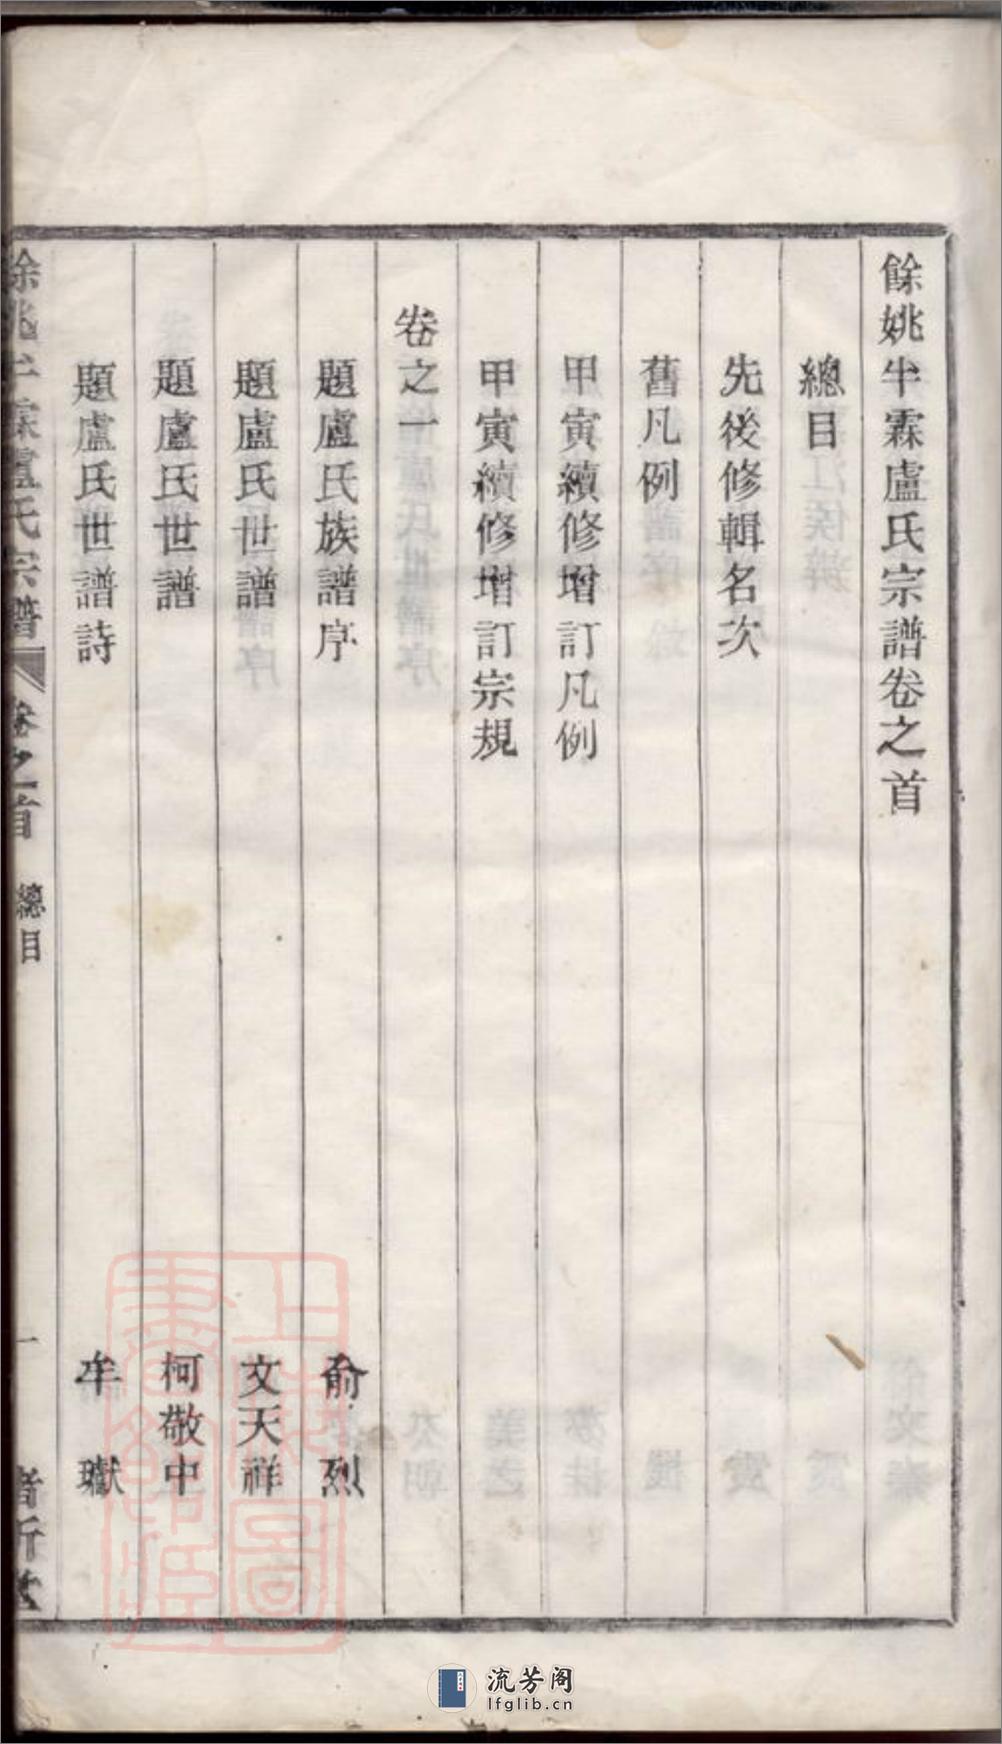 餘姚半霖盧氏宗譜卷之首
總目
先後修輯名次
舊凡例
甲寅續修增訂凡例
甲寅續修增訂宗規
卷之一
題盧氏族譜序 俞烈
題盧氏世譜 文天祥
題盧氏世譜 柯敬中
題盧氏世譜詩 牟巘
餘姚半霖盧氏宗譜 卷之首 總目 一
上海圖書館藏
流芳阁
lfglib.cn